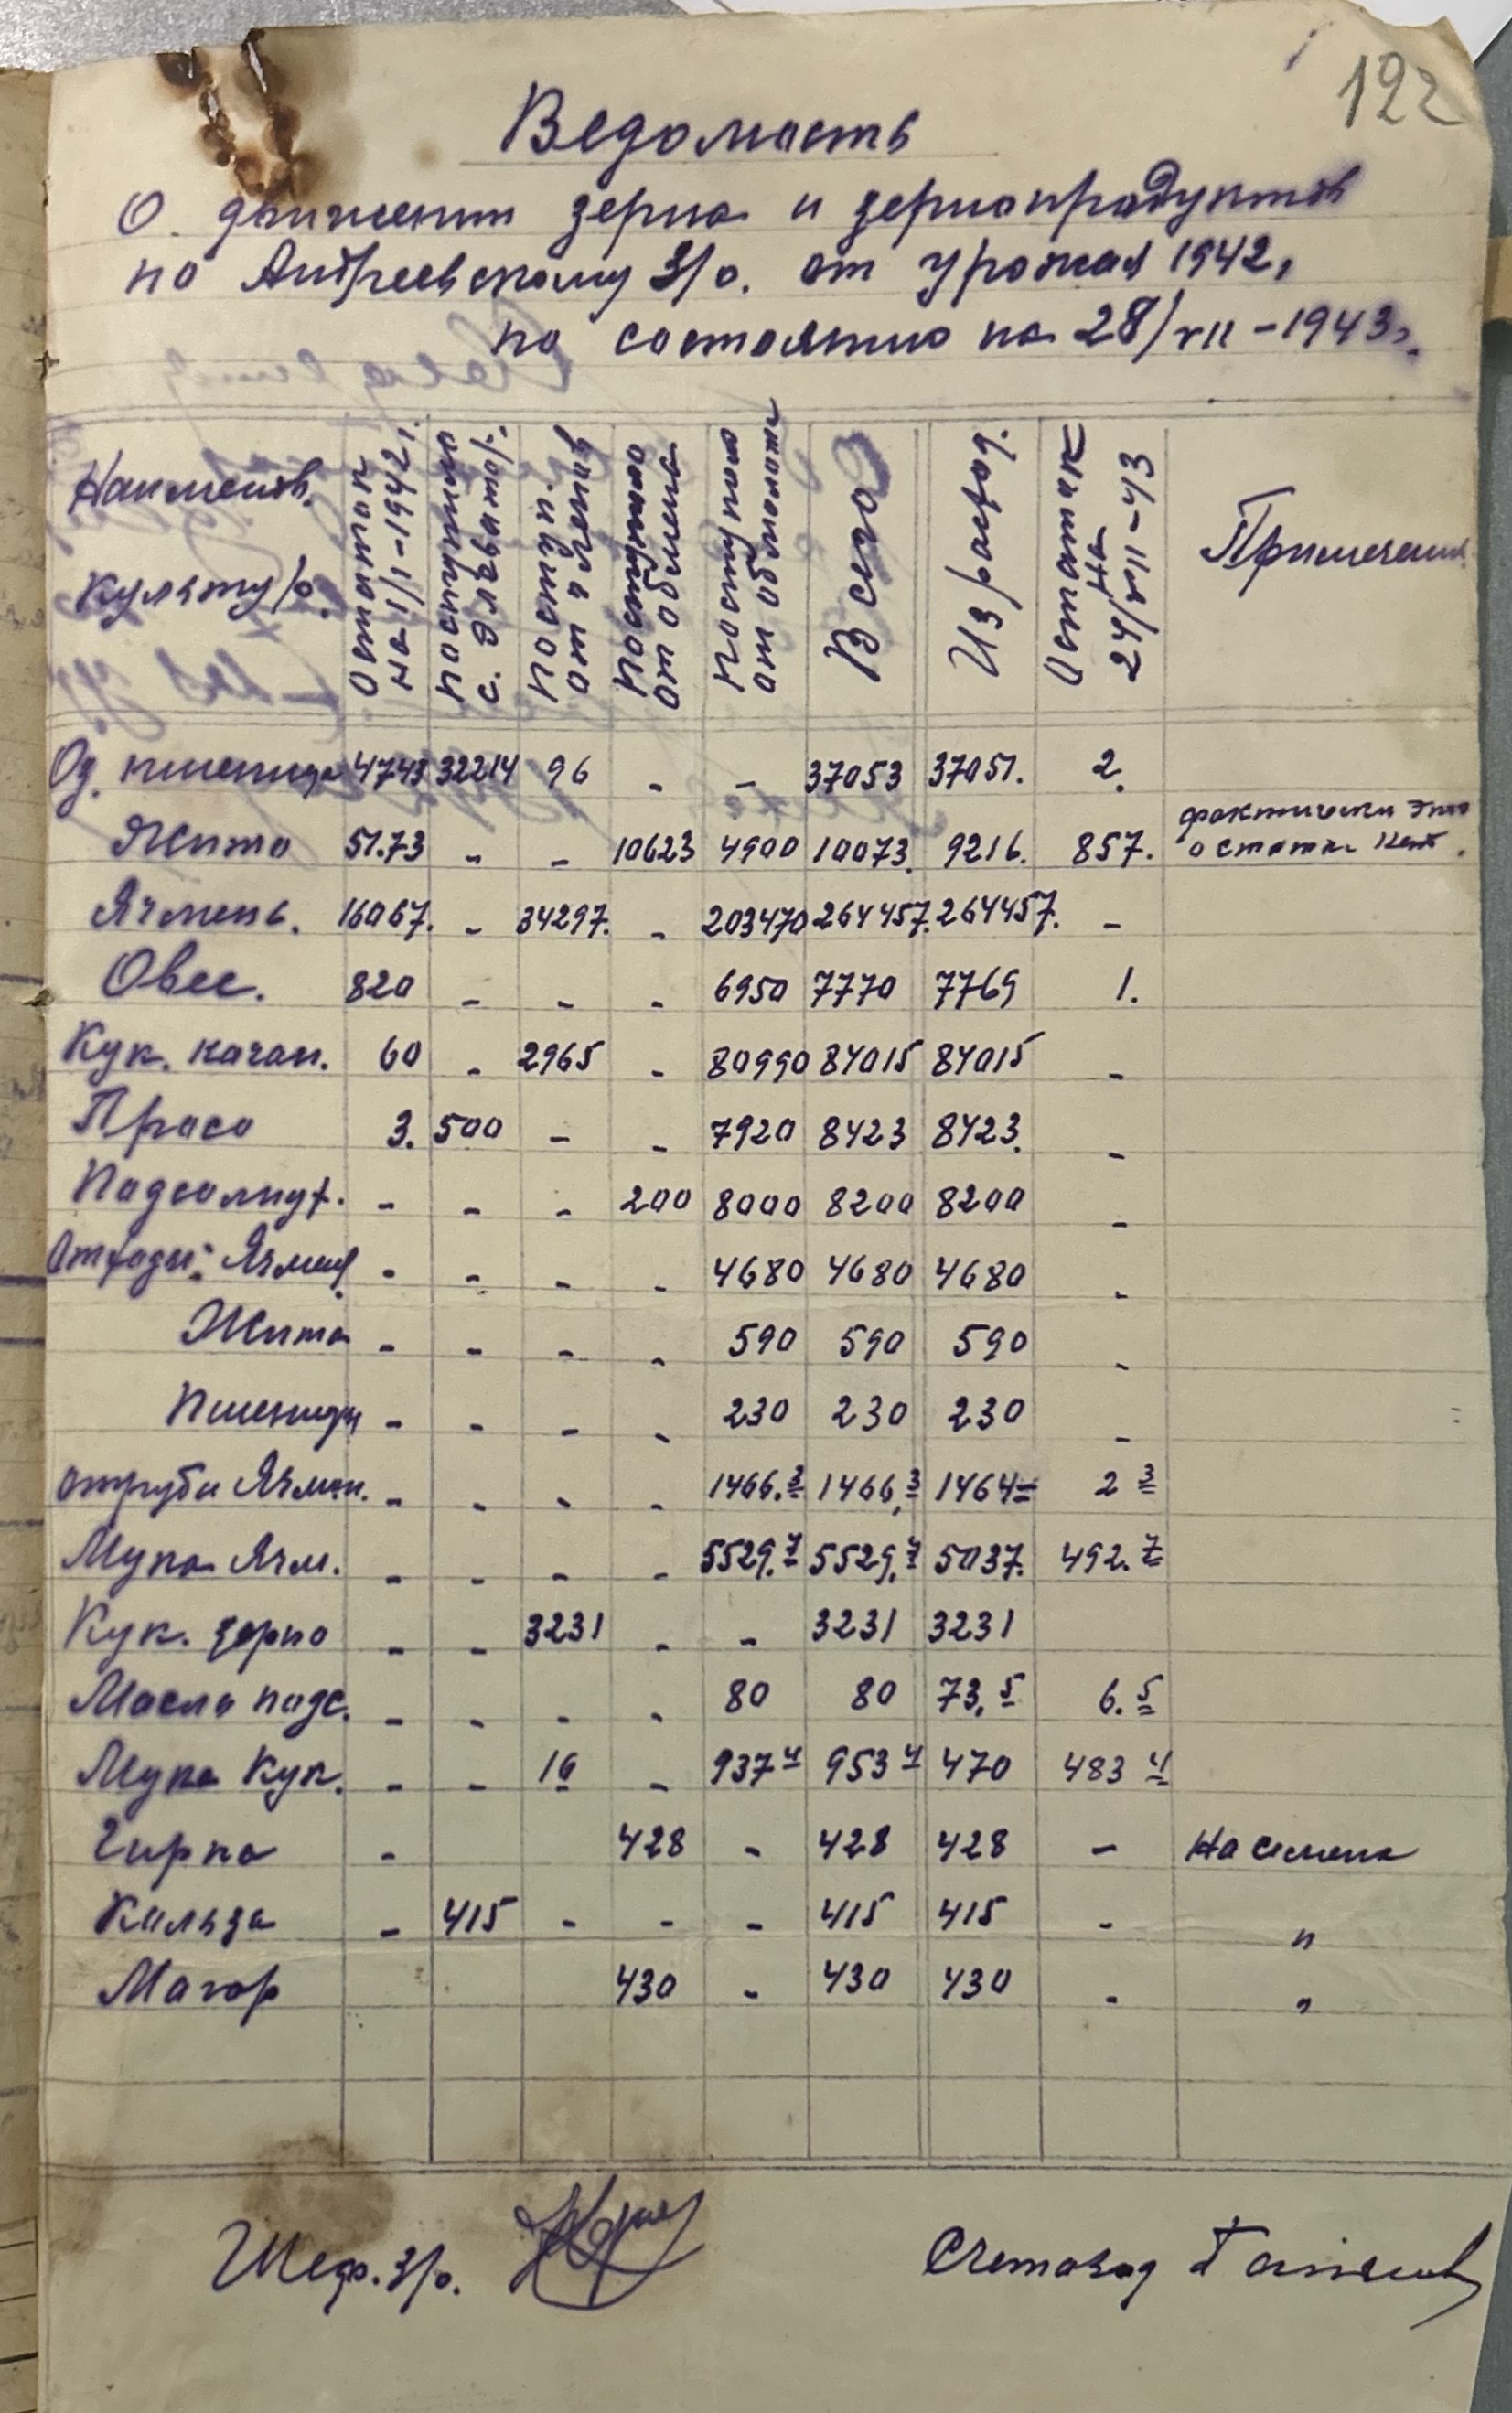 122
Ведомость
О движении зерна и зернопродуктов
по Андреевскому З/о. от урожая 1942г
по состоянию на 28/VII – 1943г.
Наименов. культур. | Остаток на 1/I-1942г. | Поступило с. элеватора | Поступ. от | Поступило от обмена | Поступило от обмолота | Всего | Израсход. | Остаток на 24/VII-43 | Примечание
Оз. пшеница 4743 32214 96 - - 37053 37051. 2.
Жито 51.73 - - 10623 4900 10073. 9216. 857. фактически этого остатка нет.
Ячмень. 16067. - 34297. - 203470 264457. 264457. -
Овес. 820 - - - 6950 7770 7769 1.
Кук. качан. 60 - 2965 - 80990 84015 84015 -
Просо 3. 500 - - 7920 8423 8423. -
Подсолнух. - - - 200 8000 8200 8200 -
Отходы: Ячмен. - - - - 4680 4680 4680 -
Жита - - - - 590 590 590 -
Пшеницы - - - - 230 230 230 -
Отруби Ячмен. - - - - 1466.3 1466,3 1464= 2 3
Мука Ячм. - - - - 5529.7 5529,7 5037. 492.7
Кук. зерно - - 3231 - - 3231 3231
Масло подс. - - - - 80 80 73,5 6.5
Мука Кук. - - 16 - 937 4 953 4 470 483 4
Гирка - 428 - 428 428 - На семена
Кользa - 415 - - - 415 415 - "
Могор 430 - 430 430 - "
Шеф. З/о.
Счетовод